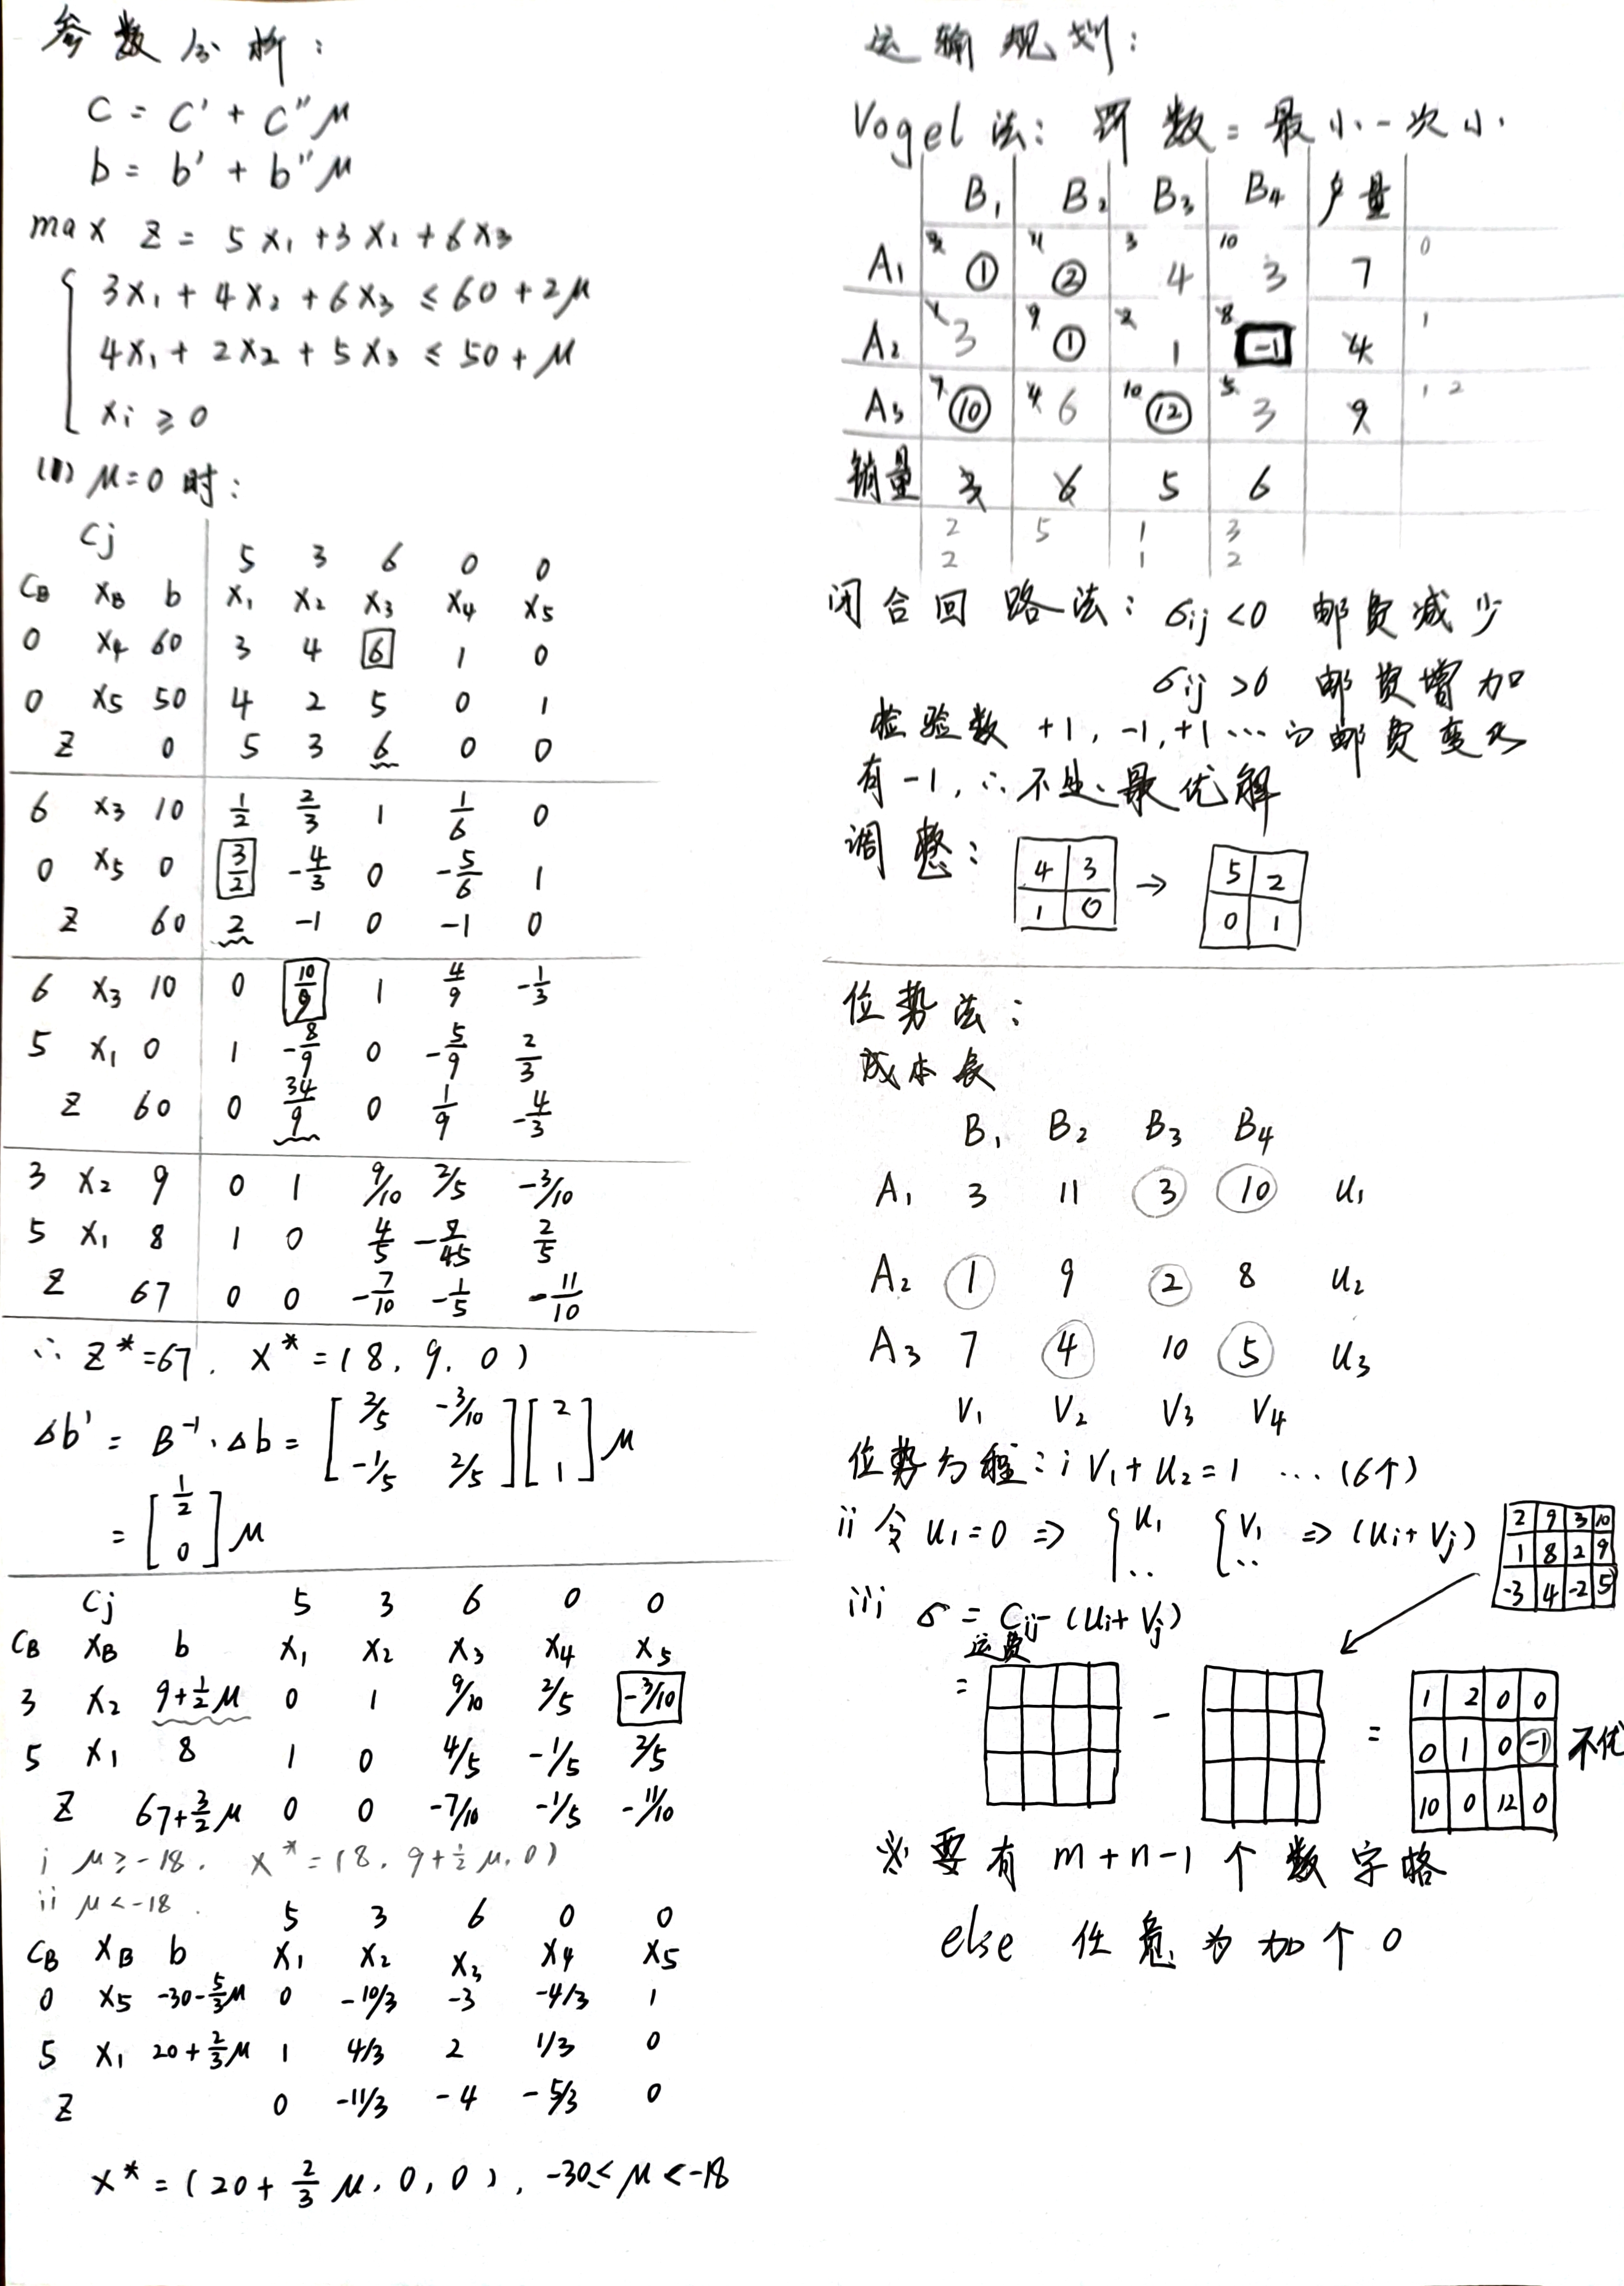 参数分析：
C = C' + C''μ
b = b' + b''μ
max Z = 5x₁ + 3x₂ + 6x₃
3x₁ + 4x₂ + 6x₃ ≤ 60 + 2μ
4x₁ + 2x₂ + 5x₃ ≤ 50 + μ
xi ≥ 0
(1) μ=0 时：
Cj 5 3 6 0 0
CB XB b x₁ x₂ x₃ x₄ x₅
0 x₄ 60 3 4 6 1 0
0 x₅ 50 4 2 5 0 1
Z 0 5 3 6 0 0
6 x₃ 10 1/2 2/3 1 1/6 0
0 x₅ 0 3/2 -4/3 0 -5/6 1
Z 60 2 -1 0 -1 0
6 x₃ 10 0 10/9 1 4/9 -1/3
5 x₁ 0 1 -8/9 0 -5/9 2/3
Z 60 0 34/9 0 1/9 -4/3
3 x₂ 9 0 1 9/10 2/5 -3/10
5 x₁ 8 1 0 4/5 -9/45 2/5
Z 67 0 0 -7/10 -1/5 -11/10
∴ Z* = 67. X* = (8, 9, 0)
Δb' = B⁻¹·Δb = [2/5 -3/10
-1/5 2/5] [2
1] μ
= [1/2
0] μ
Cj 5 3 6 0 0
CB XB b x₁ x₂ x₃ x₄ x₅
3 x₂ 9+½μ 0 1 9/10 2/5 -3/10
5 x₁ 8 1 0 4/5 -1/5 2/5
Z 67+3/2μ 0 0 -7/10 -1/5 -11/10
i μ≥-18. X* = (8, 9+½μ, 0)
ii μ<-18.
5 3 6 0 0
CB XB b x₁ x₂ x₃ x₄ x₅
0 x₅ -30-5/3μ 0 -10/3 -3 -4/3 1
5 x₁ 20+2/3μ 1 4/3 2 1/3 0
Z 0 -11/3 -4 -5/3 0
X* = (20 + 2/3 μ, 0, 0), -30 ≤ μ < -18
运输规划：
Vogel法：罚数 = 最小-次小.
B₁ B₂ B₃ B₄ 产量
A₁ 3 ① 11 ② 3 4 10 3 7 0
A₂ 1 3 9 ① 2 1 8 -1 4 1
A₃ 7 ⑩ 4 6 10 ⑫ 5 3 9 1 2
销量 3 6 5 6
2 5 1 3
2 1 2
闭合回路法：σij <0 邮费减少
σij >0 邮费增加
检验数 +1, -1, +1 … 邮费变
有-1, ∴不是最优解
调整： 4 3 → 5 2
1 0 0 1
位势法：
成本表
B₁ B₂ B₃ B₄
A₁ 3 11 ③ ⑩ u₁
A₂ ① 9 ② 8 u₂
A₃ 7 ④ 10 ⑤ u₃
V₁ V₂ V₃ V₄
位势方程：i V₁+u₂=1 … (6个)
ii 令 u₁=0 ⇒ { u₁ { V₁ ⇒ (ui+Vj)
.. ..
2 9 3 10
1 8 2 9
-3 4 -2 5
iii σ = Cij - (ui+Vj)
运费
= - =
1 2 0 0
0 1 0 -1 不优
10 0 12 0
※要有 m+n-1 个数字格
else 任意 加个 0